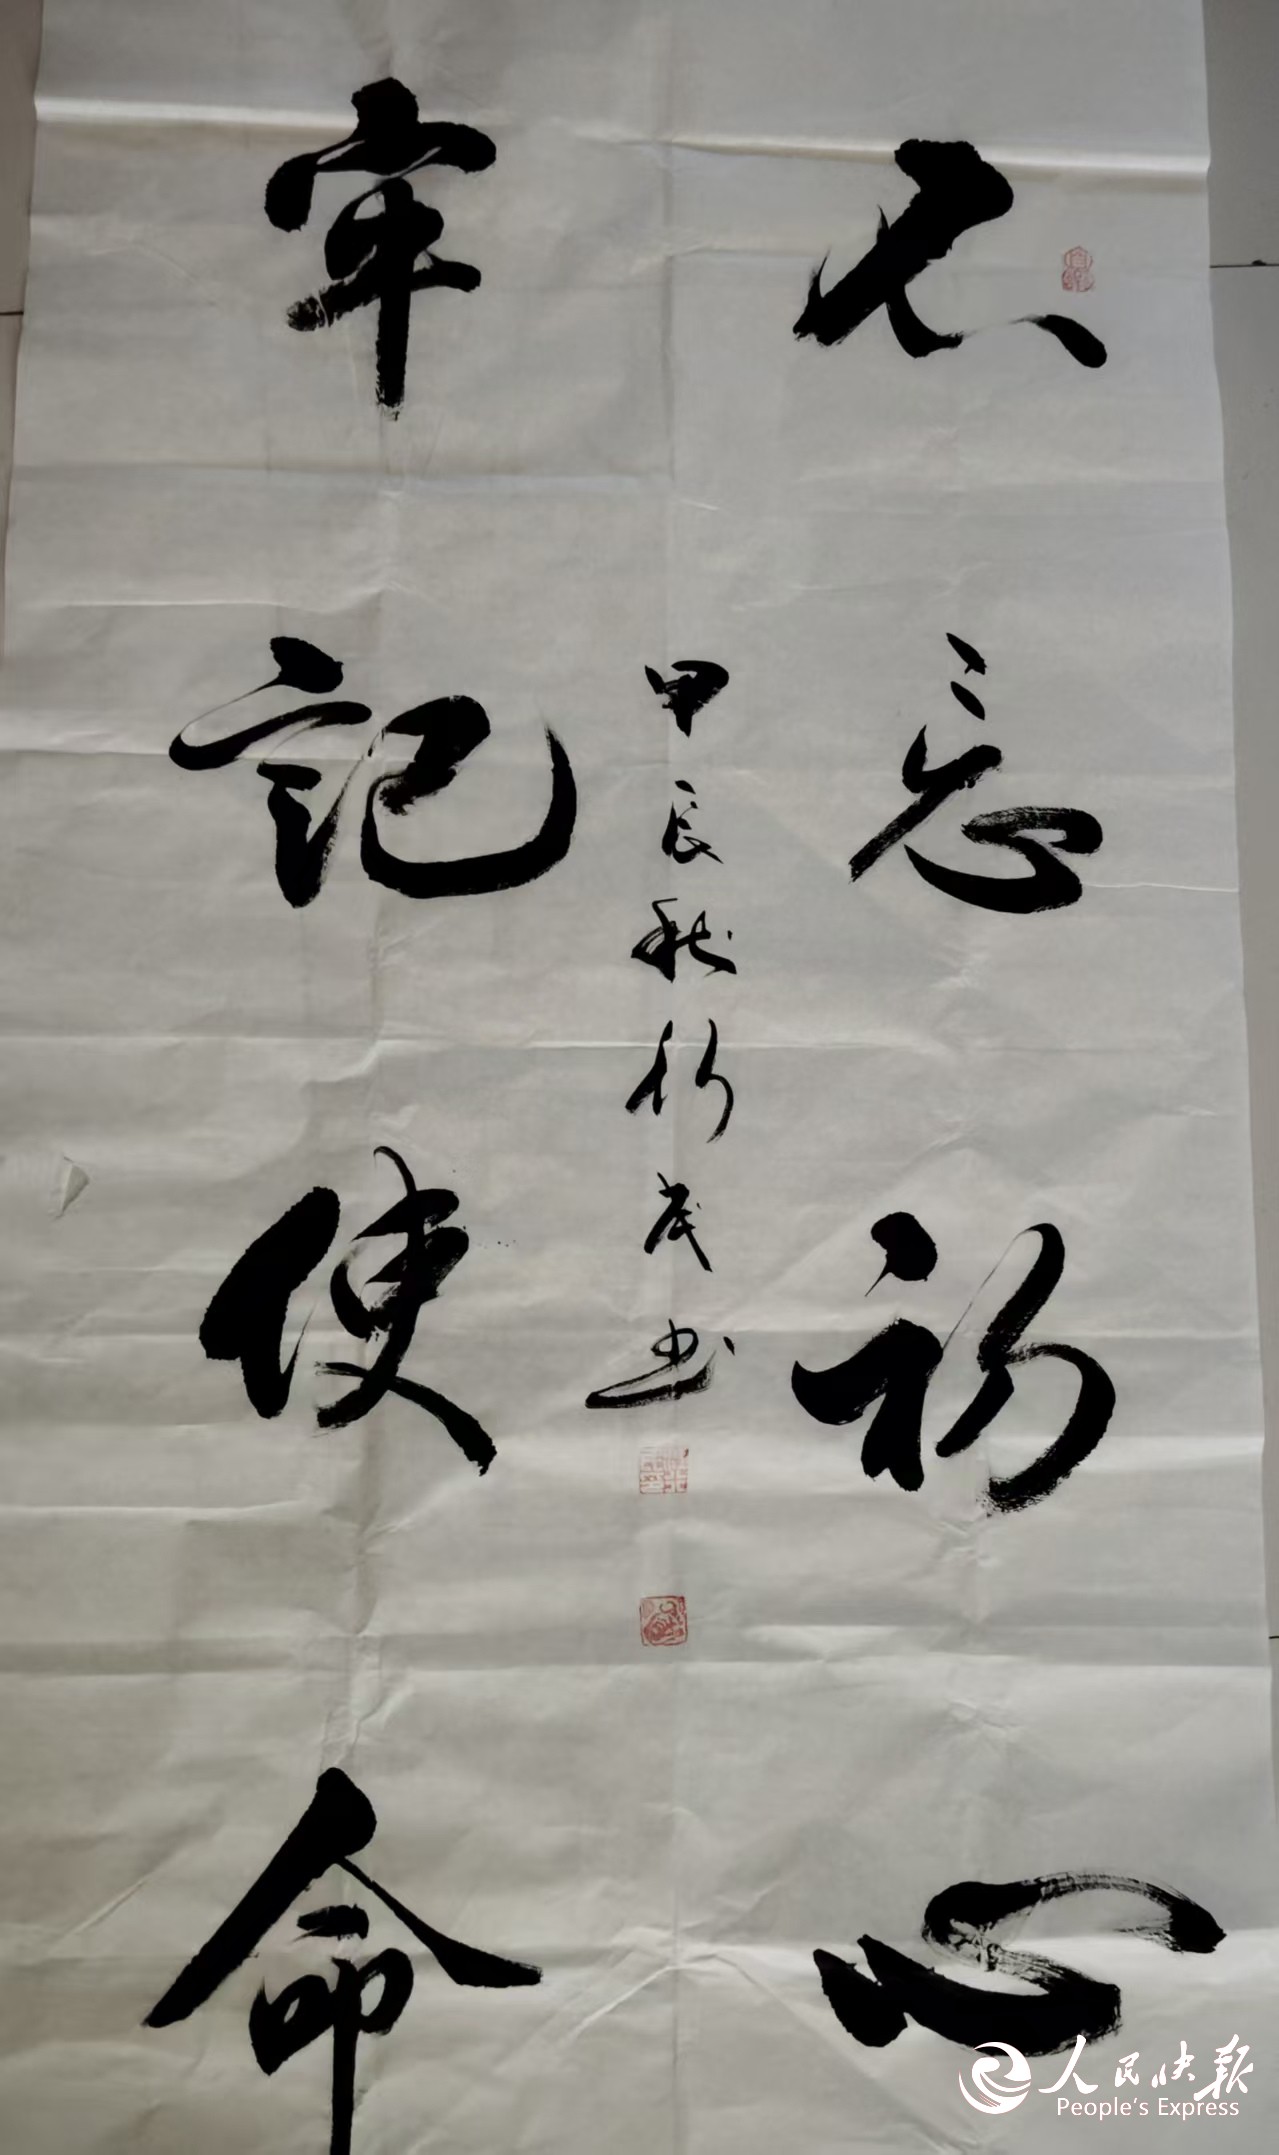 不忘初心
甲辰秋行茂书
牢記使命
人民快报
People's Express